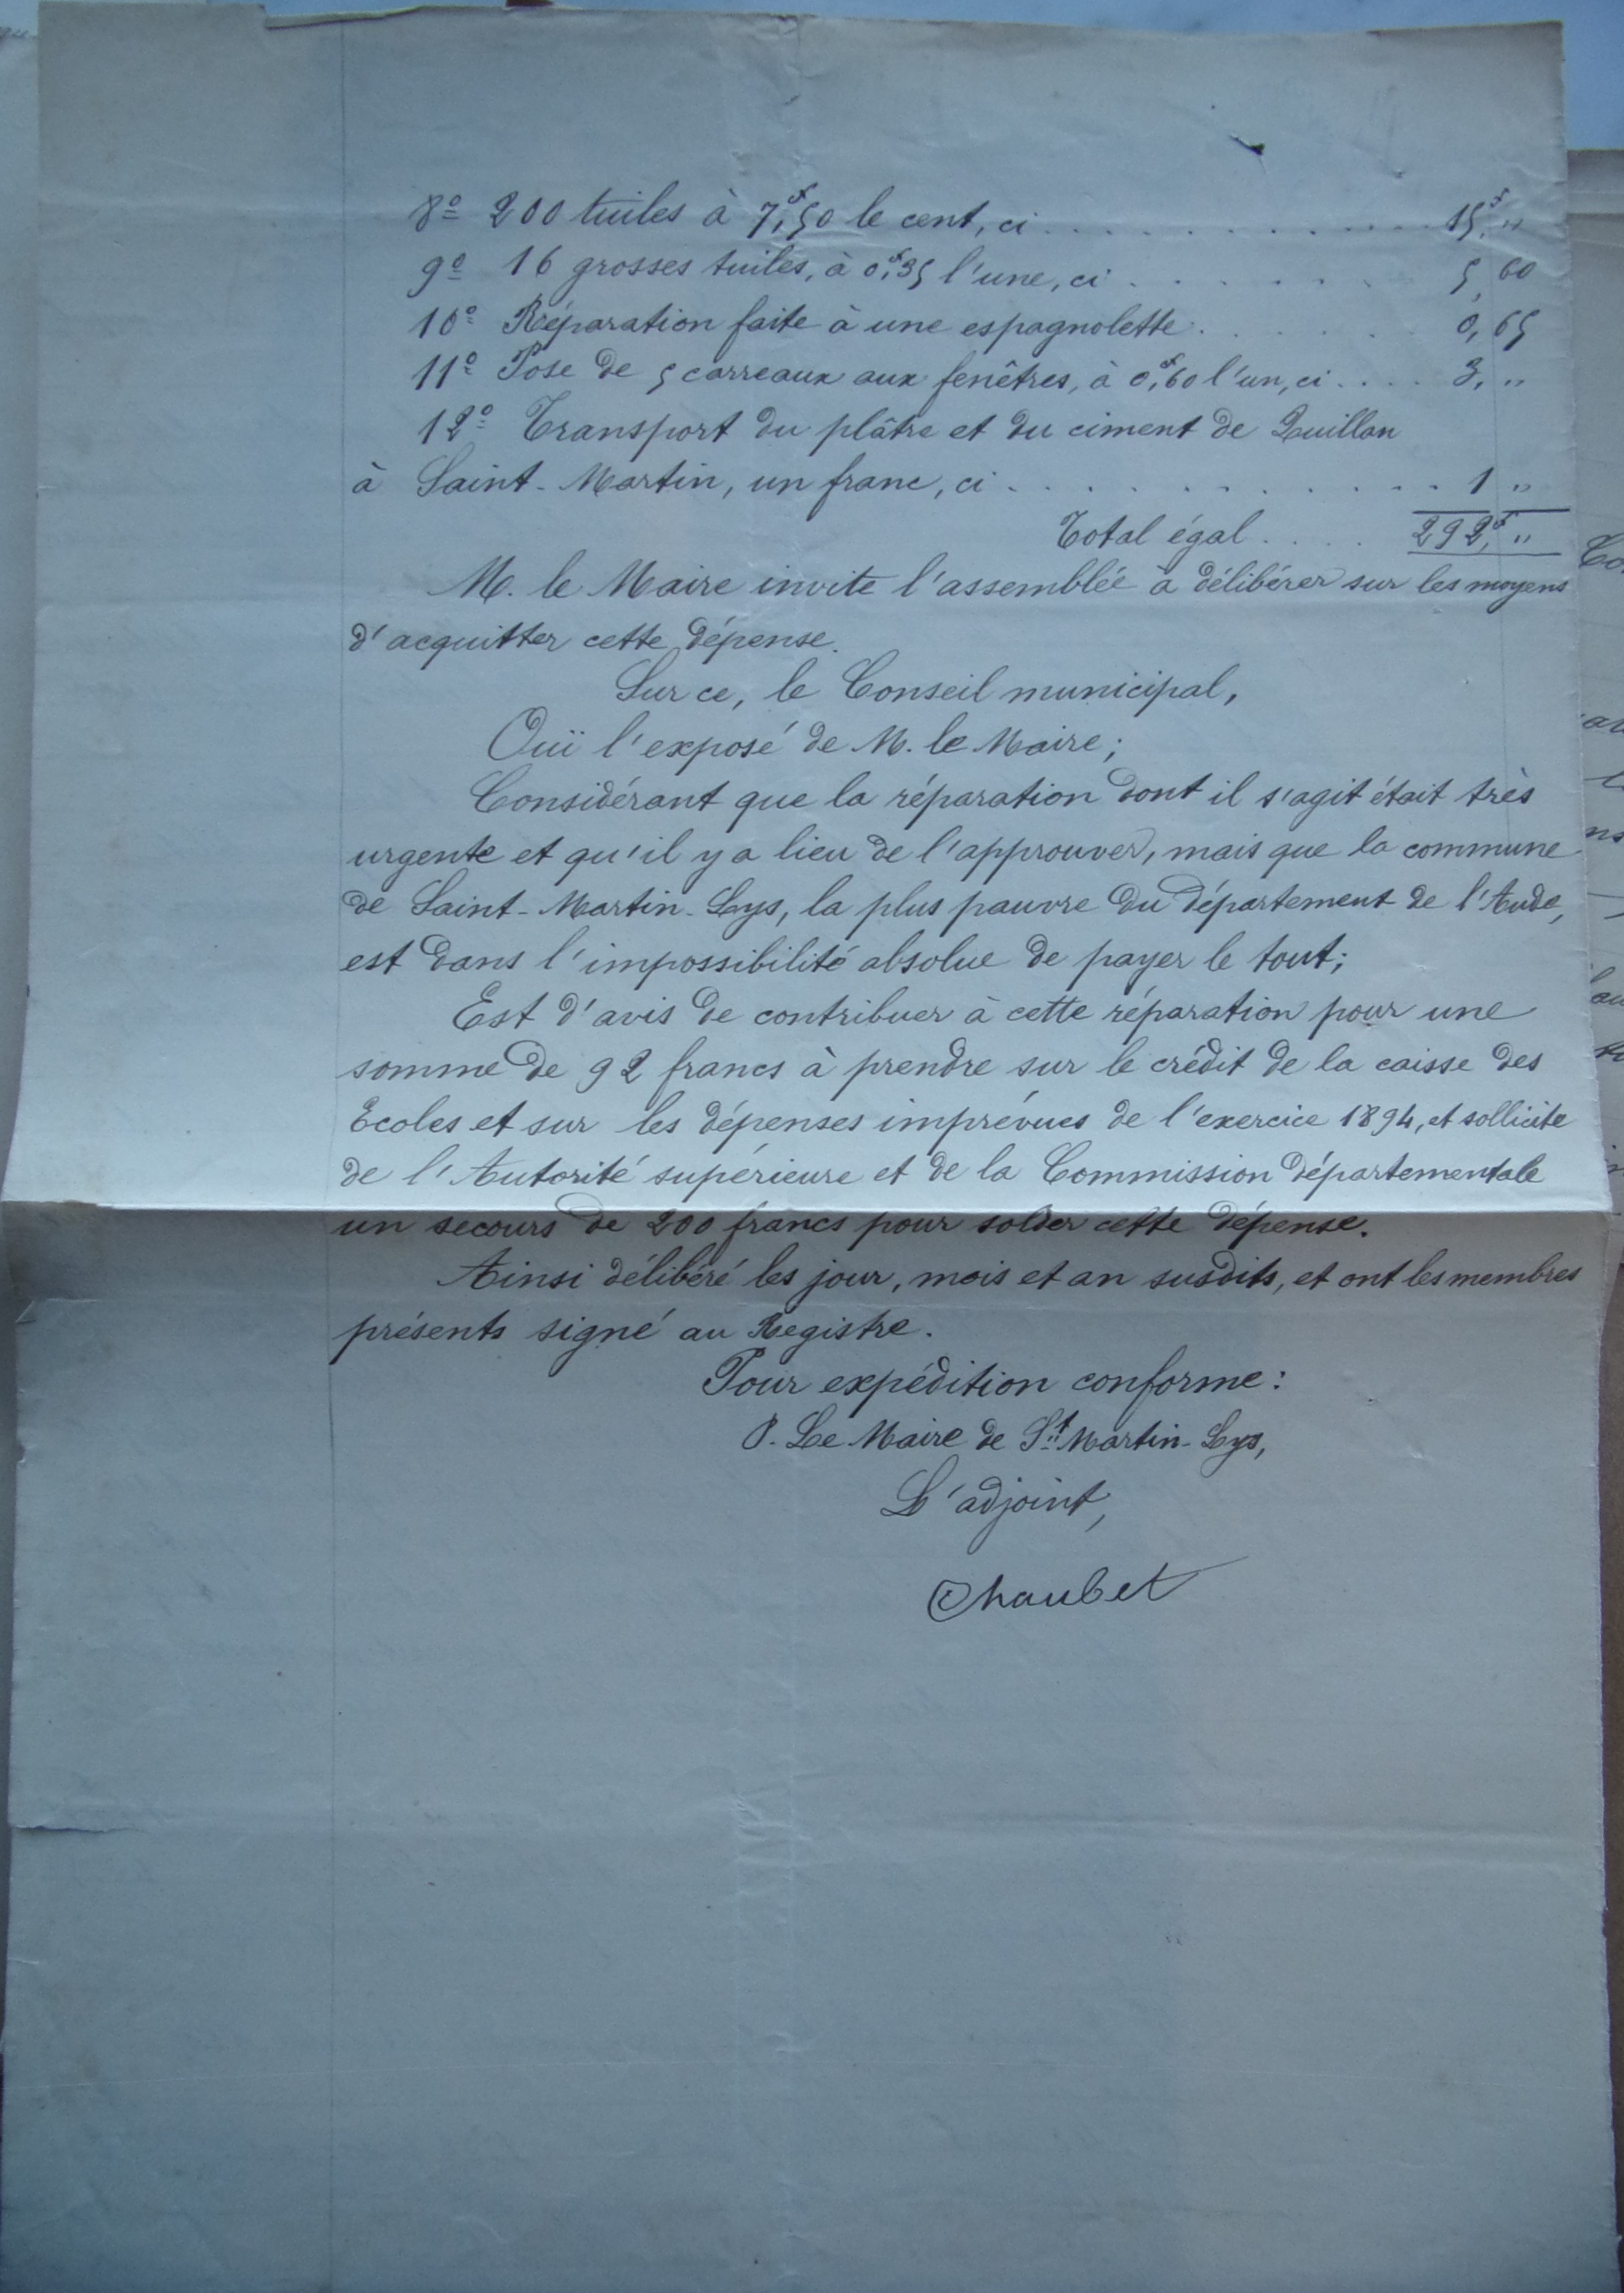 8º 200 tuiles à 7,f50 le cent, ci . . . . . . . . . . . . . 15,f "
9º 16 grosses tuiles, à 0,f35 l'une, ci . . . . . . . 5,60
10º Réparation faite à une espagnolette . . . . . . 0,65
11º Pose de 5 carreaux aux fenêtres, à 0,f60 l'un, ci . . . . 3, "
12º Transport du plâtre et du ciment de Quillan
à Saint-Martin, un franc, ci . . . . . . . . . . . 1 "
Total égal . . . . 292,f "
M. le Maire invite l'assemblée à délibérer sur les moyens
d'acquitter cette dépense.
Sur ce, le Conseil municipal,
Ouï l'exposé de M. le Maire;
Considérant que la réparation dont il s'agit était très
urgente et qu'il y a lieu de l'approuver, mais que la commune
de Saint-Martin-Lys, la plus pauvre du département de l'Aude,
est dans l'impossibilité absolue de payer le tout;
Est d'avis de contribuer à cette réparation pour une
somme de 92 francs à prendre sur le crédit de la caisse des
Ecoles et sur les dépenses imprévues de l'exercice 1894, et sollicite
de l'Autorité supérieure et de la Commission départementale
un secours de 200 francs pour solder cette dépense.
Ainsi délibéré les jour, mois et an susdits, et ont les membres
présents signé au Registre.
Pour expédition conforme:
P. Le Maire de St Martin-Lys,
L'adjoint,
Chaubet